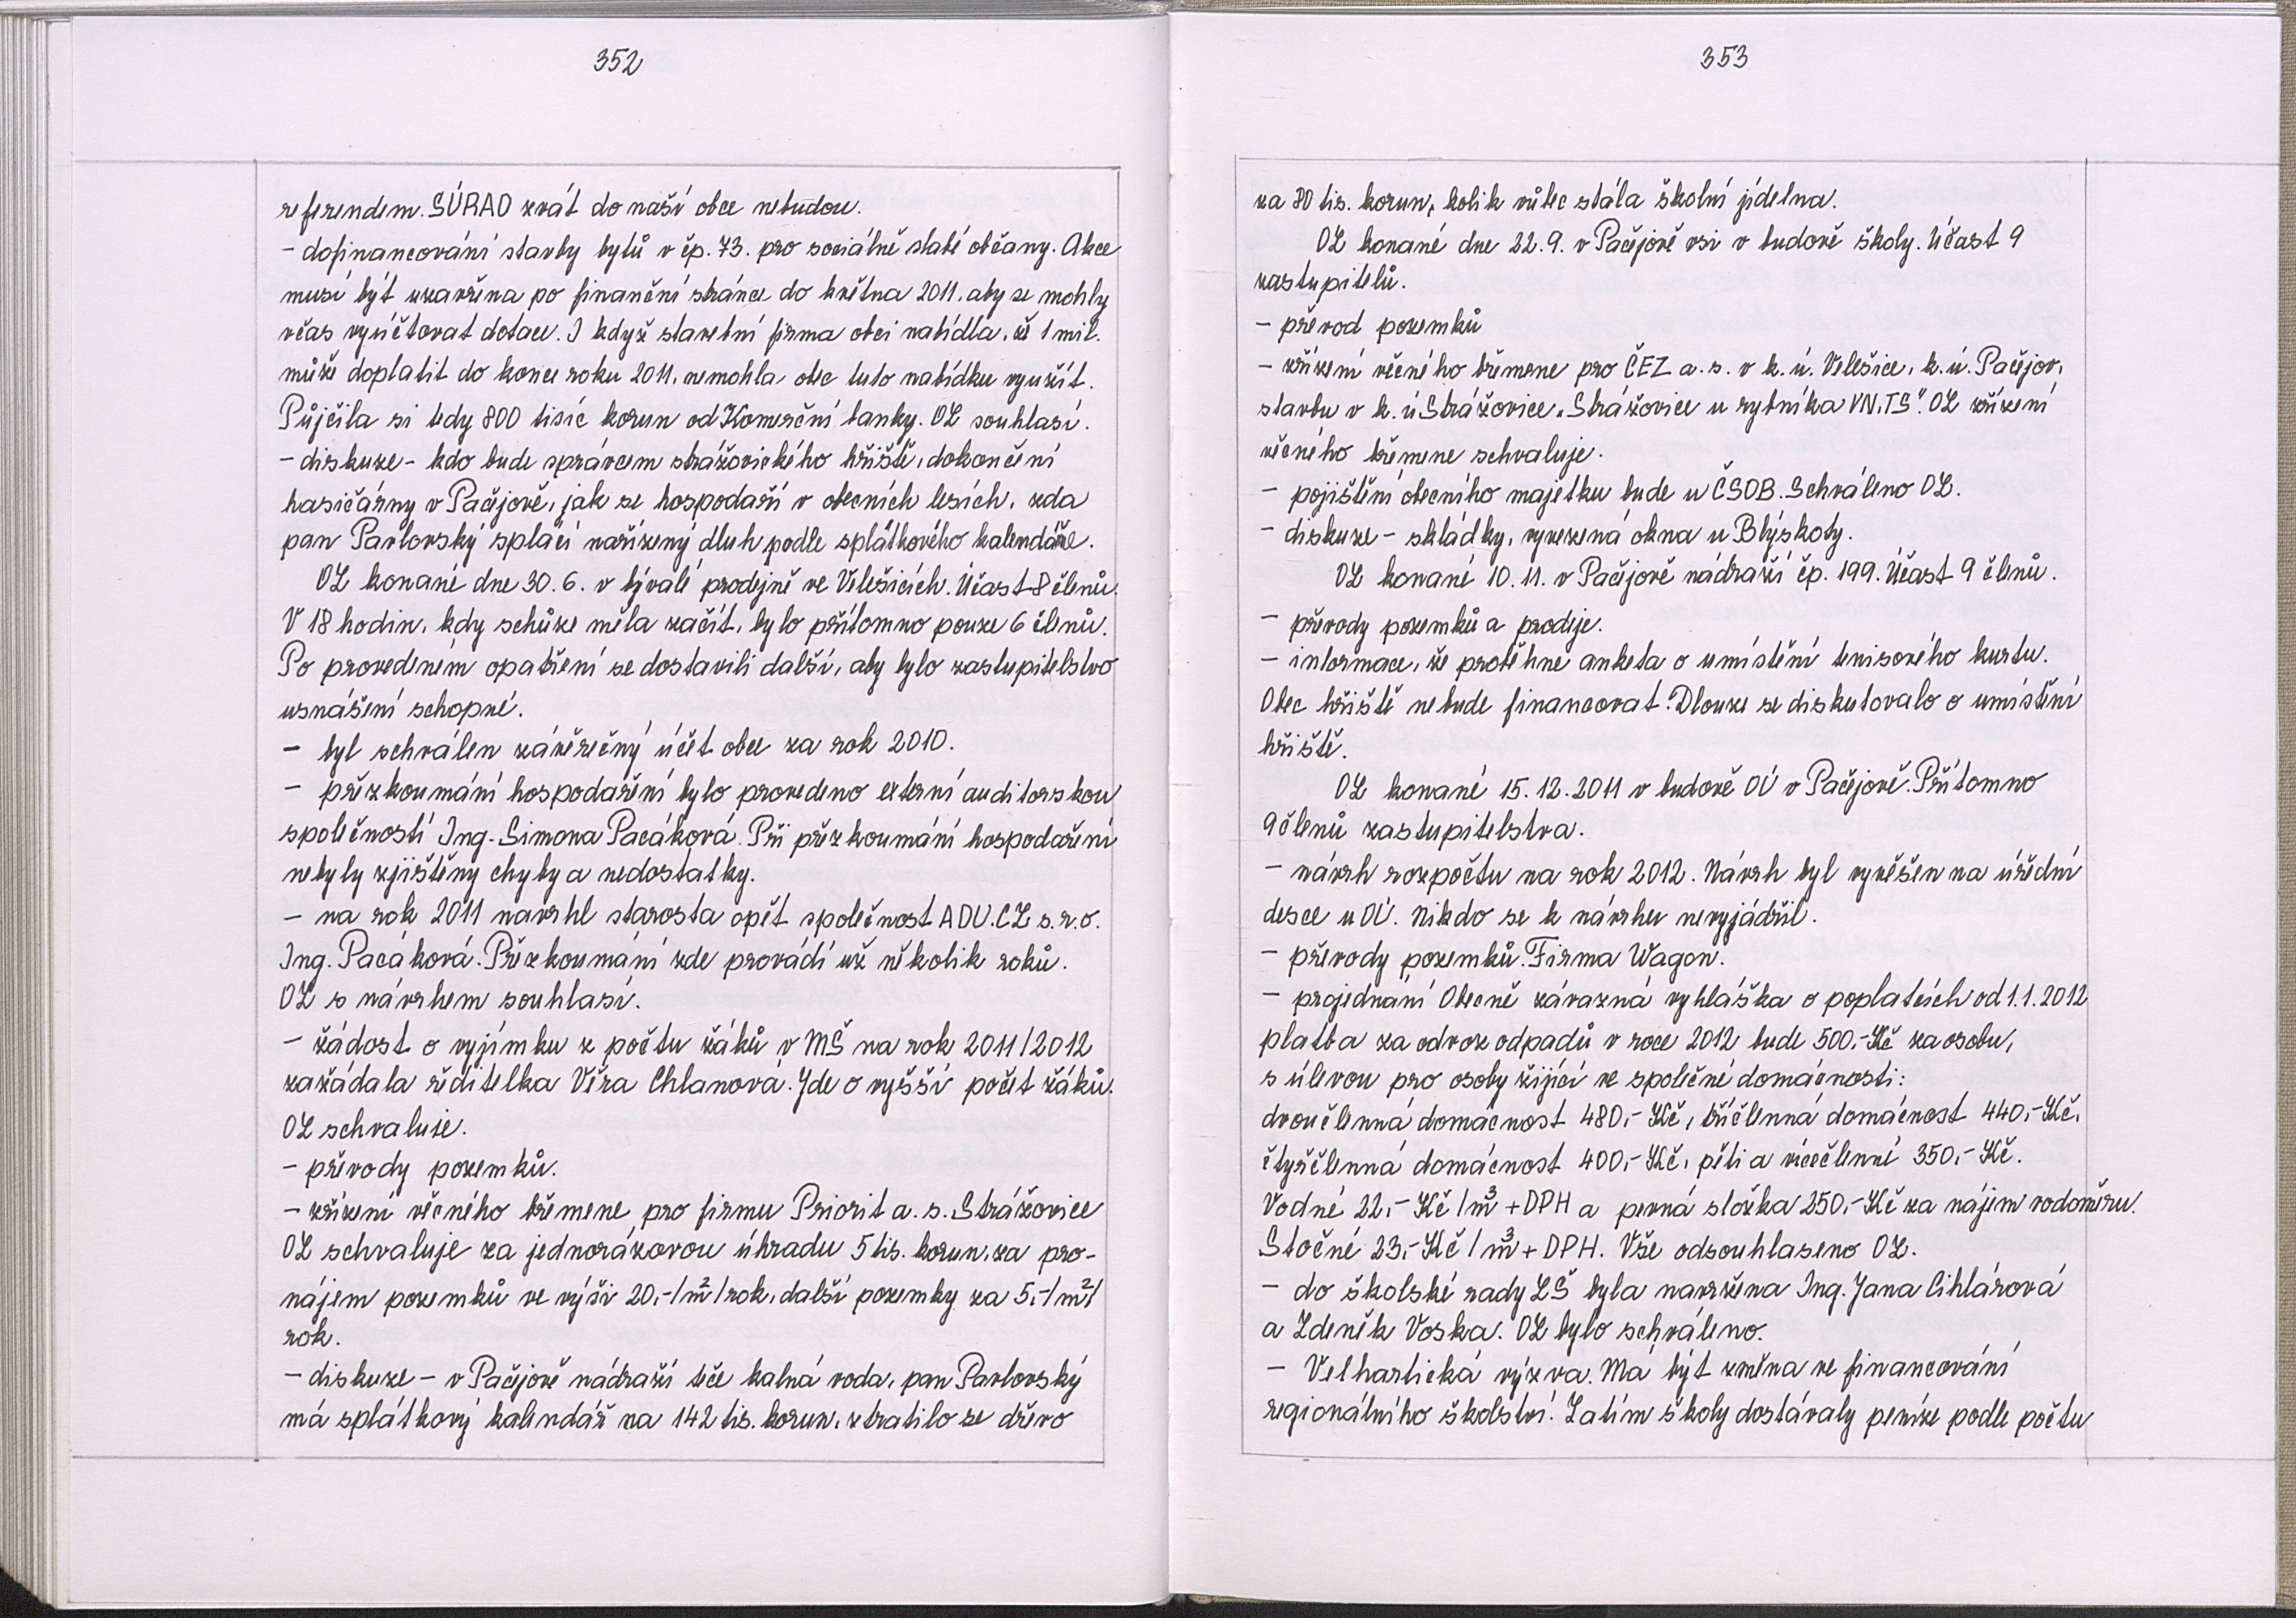 352
referendem. SÚRAO zvát do naší obce nebudou.
- dofinancování stavby bytů v čp. 73. pro sociálně slabé občany. Akce
musí být uzavřena po finanční stránce do května 2011, aby se mohly
včas vyúčtovat dotace. I když stavební firma obci nabídla, že 1 mil.
může doplatit do konce roku 2011, nemohla obec tuto nabídku využít.
Půjčila si tedy 800 tisíc korun od Komerční banky. OZ souhlasí.
- diskuze - kdo bude správcem strážovického hřiště, dokončení
hasičárny v Pačejově, jak se hospodaří v obecních lesích, zda
pan Pavlovský splácí nařízený dluh podle splátkového kalendáře.
OZ konané dne 30. 6. v bývalé prodejně ve Velešicích. Účast 8 členů.
V 18 hodin, kdy schůze měla začít, bylo přítomno pouze 6 členů.
Po provedeném opatření se dostavili další, aby bylo zastupitelstvo
usnášení schopné.
- byl schválen závěrečný účet obce za rok 2010.
- přezkoumání hospodaření bylo provedeno externí auditorskou
společností Ing. Simona Pacáková. Při přezkoumání hospodaření
nebyly zjištěny chyby a nedostatky.
- na rok 2011 navrhl starosta opět společnost ADU.CZ s.r.o.
Ing. Pacáková. Přezkoumání zde provádí už několik roků.
OZ s návrhem souhlasí.
- žádost o vyjímku z počtu žáků v MŠ na rok 2011/2012
zažádala ředitelka Věra Chlanová. Jde o vyšší počet žáků.
OZ schvaluje.
- převody pozemků.
- zřízení věcného břemene pro firmu Priorit a. s. Strážovice
OZ schvaluje za jednorázovou úhradu 5 tis. korun, za pro-
nájem pozemků ve výši 20,-/m²/rok, další pozemky za 5,-/m²/
rok.
- diskuze - v Pačejově nádraží teče kalná voda, pan Pavlovský
má splátkový kalendář na 142 tis. korun, ztratilo se dřevo
353
za 80 tis. korun, kolik vůbec stála školní jídelna.
OZ konané dne 22. 9. v Pačejově vsi v budově školy. Účast 9
zastupitelů.
- převod pozemků
- zřízení věcného břemene pro ČEZ a. s. v k. ú. Velešice, k. ú. Pačejov,
stavbu v k. ú Strážovice „Strážovice u rybníka VN, TS". OZ zřízení
věcného břemene schvaluje.
- pojištění obecního majetku bude u ČSOB. Schváleno OZ.
- diskuze - skládky, vyvezená okna u Blýskoty.
OZ konané 10. 11. v Pačejově nádraží čp. 199. Účast 9 členů.
- převody pozemků a prodeje.
- informace, že proběhne anketa o umístění tenisového kurtu.
Obec hřiště nebude financovat. Dlouze se diskutovalo o umístění
hřiště.
OZ konané 15. 12. 2011 v budově OÚ v Pačejově. Přítomno
9 členů zastupitelstva.
- návrh rozpočtu na rok 2012. Návrh byl vyvěšen na úřední
desce u OÚ. Nikdo se k návrhu nevyjádřil.
- převody pozemků. Firma Wagon.
- projednání Obecně závazná vyhláška o poplatcích od 1. 1. 2012
platba za odvoz odpadů v roce 2012 bude 500,- Kč za osobu,
s úlevou pro osoby žijící ve společné domácnosti:
dvoučlenná domácnost 480,- Kč, tříčlenná domácnost 440,- Kč,
čtyřčlenná domácnost 400,- Kč, pěti a vícečlenné 350,- Kč.
Vodné 22,- Kč/m³ + DPH a pevná složka 250,- Kč za nájem vodoměru.
Stočné 23,- Kč/m³ + DPH. Vše odsouhlaseno OZ.
- do školské rady ZŠ byla navržena Ing. Jana Cihlářová
a Zdeněk Voska. OZ bylo schváleno.
- Velhartická výzva. Má být změna ve financování
regionálního školství. Zatím školy dostávaly peníze podle počtu